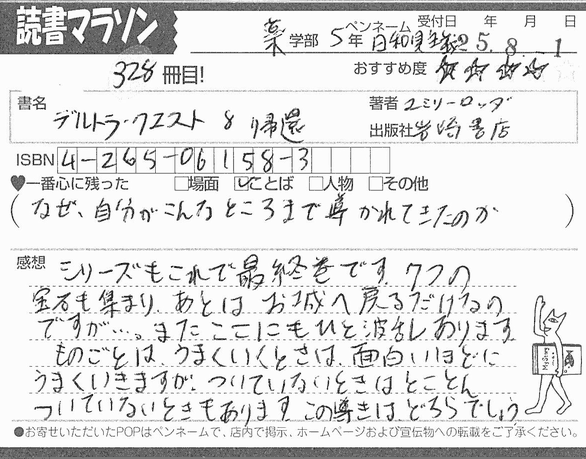 読書マラソン
薬 学部 5年 ペンネーム 日和見 受付日 年 月 日
25.8.1
328冊目!
おすすめ度 ☆☆☆☆
書名 デルトラ・クエスト 8 帰還
著者 エミリーロッダ
出版社 岩崎書店
ISBN 4-265-06158-3
♥一番心に残った □場面 ☑ことば □人物 □その他
(なぜ、自分がこんなところまで導かれてきたのか)
感想 シリーズもこれで最終巻です。7つの
宝石も集まり、あとはお城へ戻るだけなの
ですが…。またここにもひと波乱あります。
ものごとは、うまくいくときは、面白いほどに
うまくいきますが、ついていないときはとことん
ついていないときもあります。この導きは、どちらでしょう
●お寄せいただいたPOPはペンネームで、店内で掲示、ホームページおよび宣伝物への転載をご了承ください。